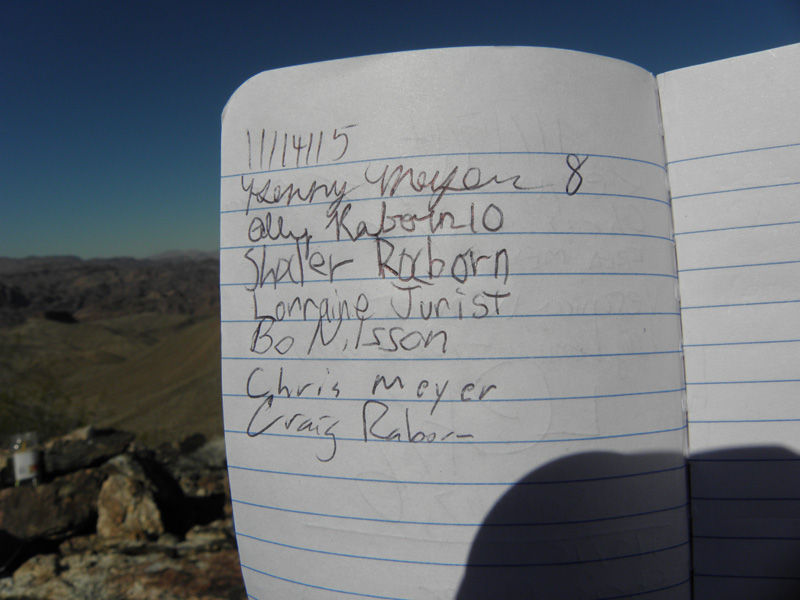 11/14/15
Kenny Meyer 8
Olly Raborn 10
Shaler Raborn
Lorraine Jurist
Bo Nilsson
Chris Meyer
Craig Raborn